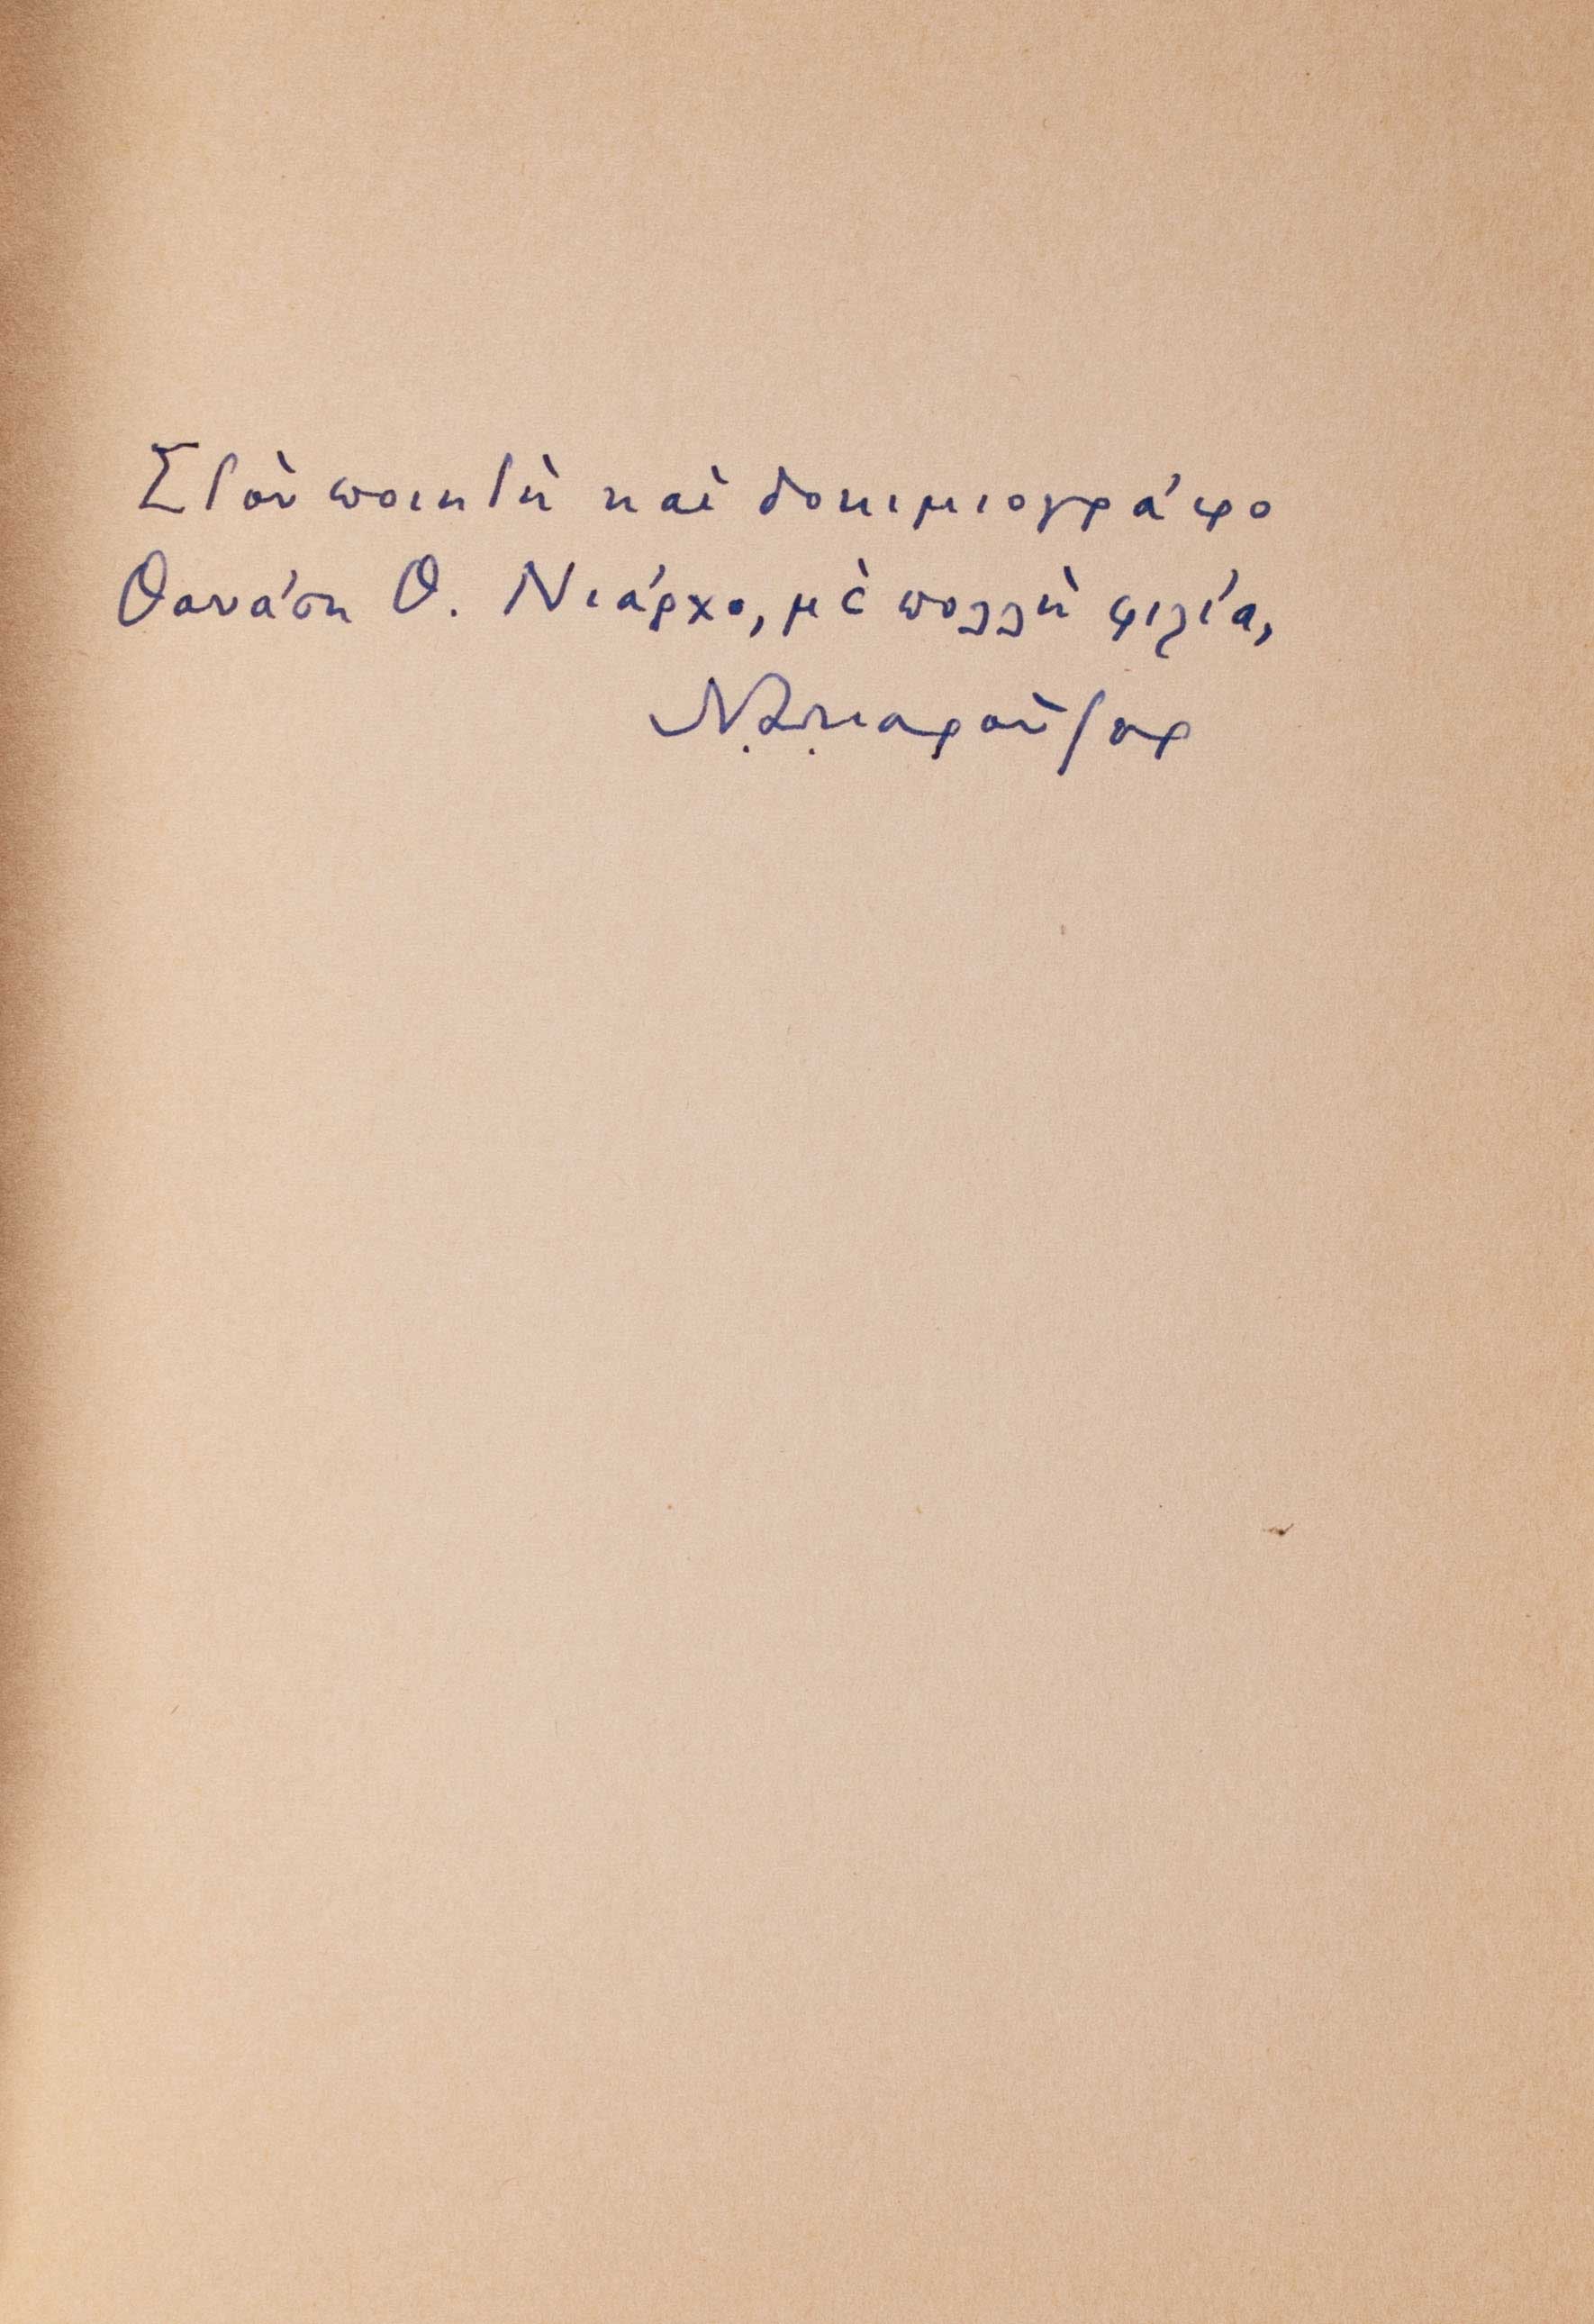 Στὸν ποιητὴ καὶ δοκιμιογράφο
Θανάση Θ. Νιάρχο, μὲ πολλὴ φιλία,
Ν. Δ. Καροῦζος